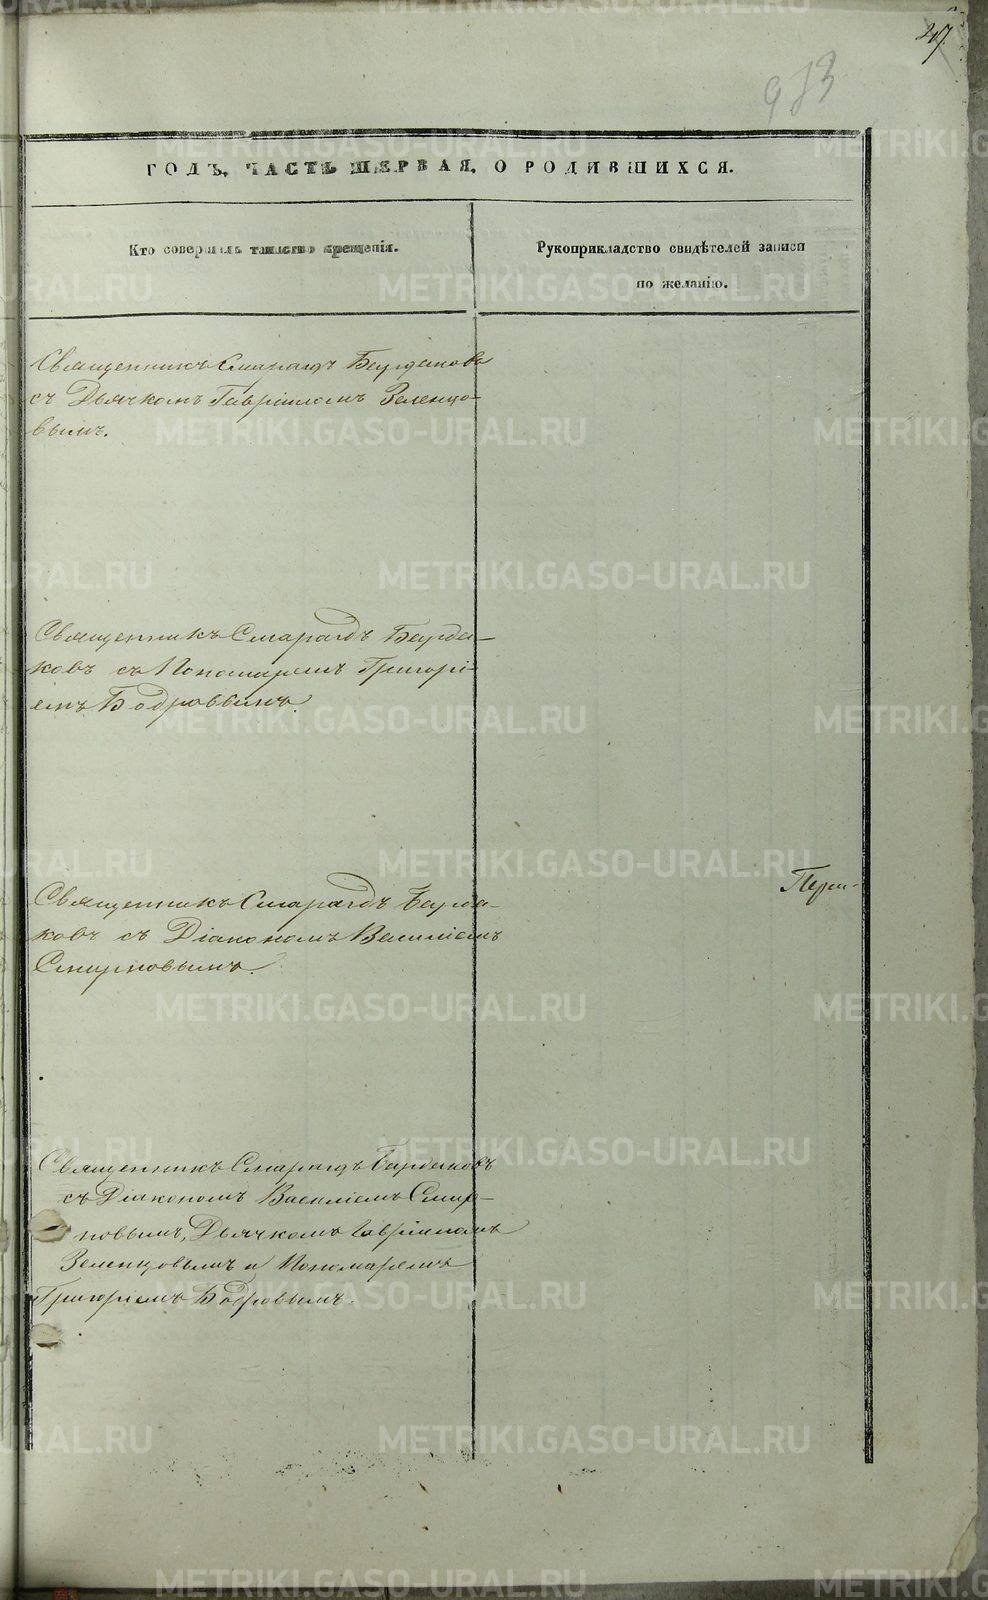 47
983
ГОДЪ, ЧАСТЬ ПЕРВАЯ, О РОДИВШИХСЯ.
Кто совершалъ таинство крещенія.
Рукоприкладство свидѣтелей записи
по желанію.
Священникъ Смарагдъ Бурдаковъ
съ Дьячкомъ Гавріиломъ Зеленцо-
вымъ.
Священникъ Смарагдъ Бурда-
ковъ съ Пономаремъ Григорі-
емъ Бодровымъ.
Священникъ Смарагдъ Бурда-
ковъ съ Діакономъ Василіемъ
Смирновымъ.
Перм-
Священникъ Смарагдъ Бурдаковъ
съ Діакономъ Василіемъ Смир-
новымъ, Дьячкомъ Гавріиломъ
Зеленцовымъ и Пономаремъ
Григоріемъ Бодровымъ.
METRIKI.GASO-URAL.RU